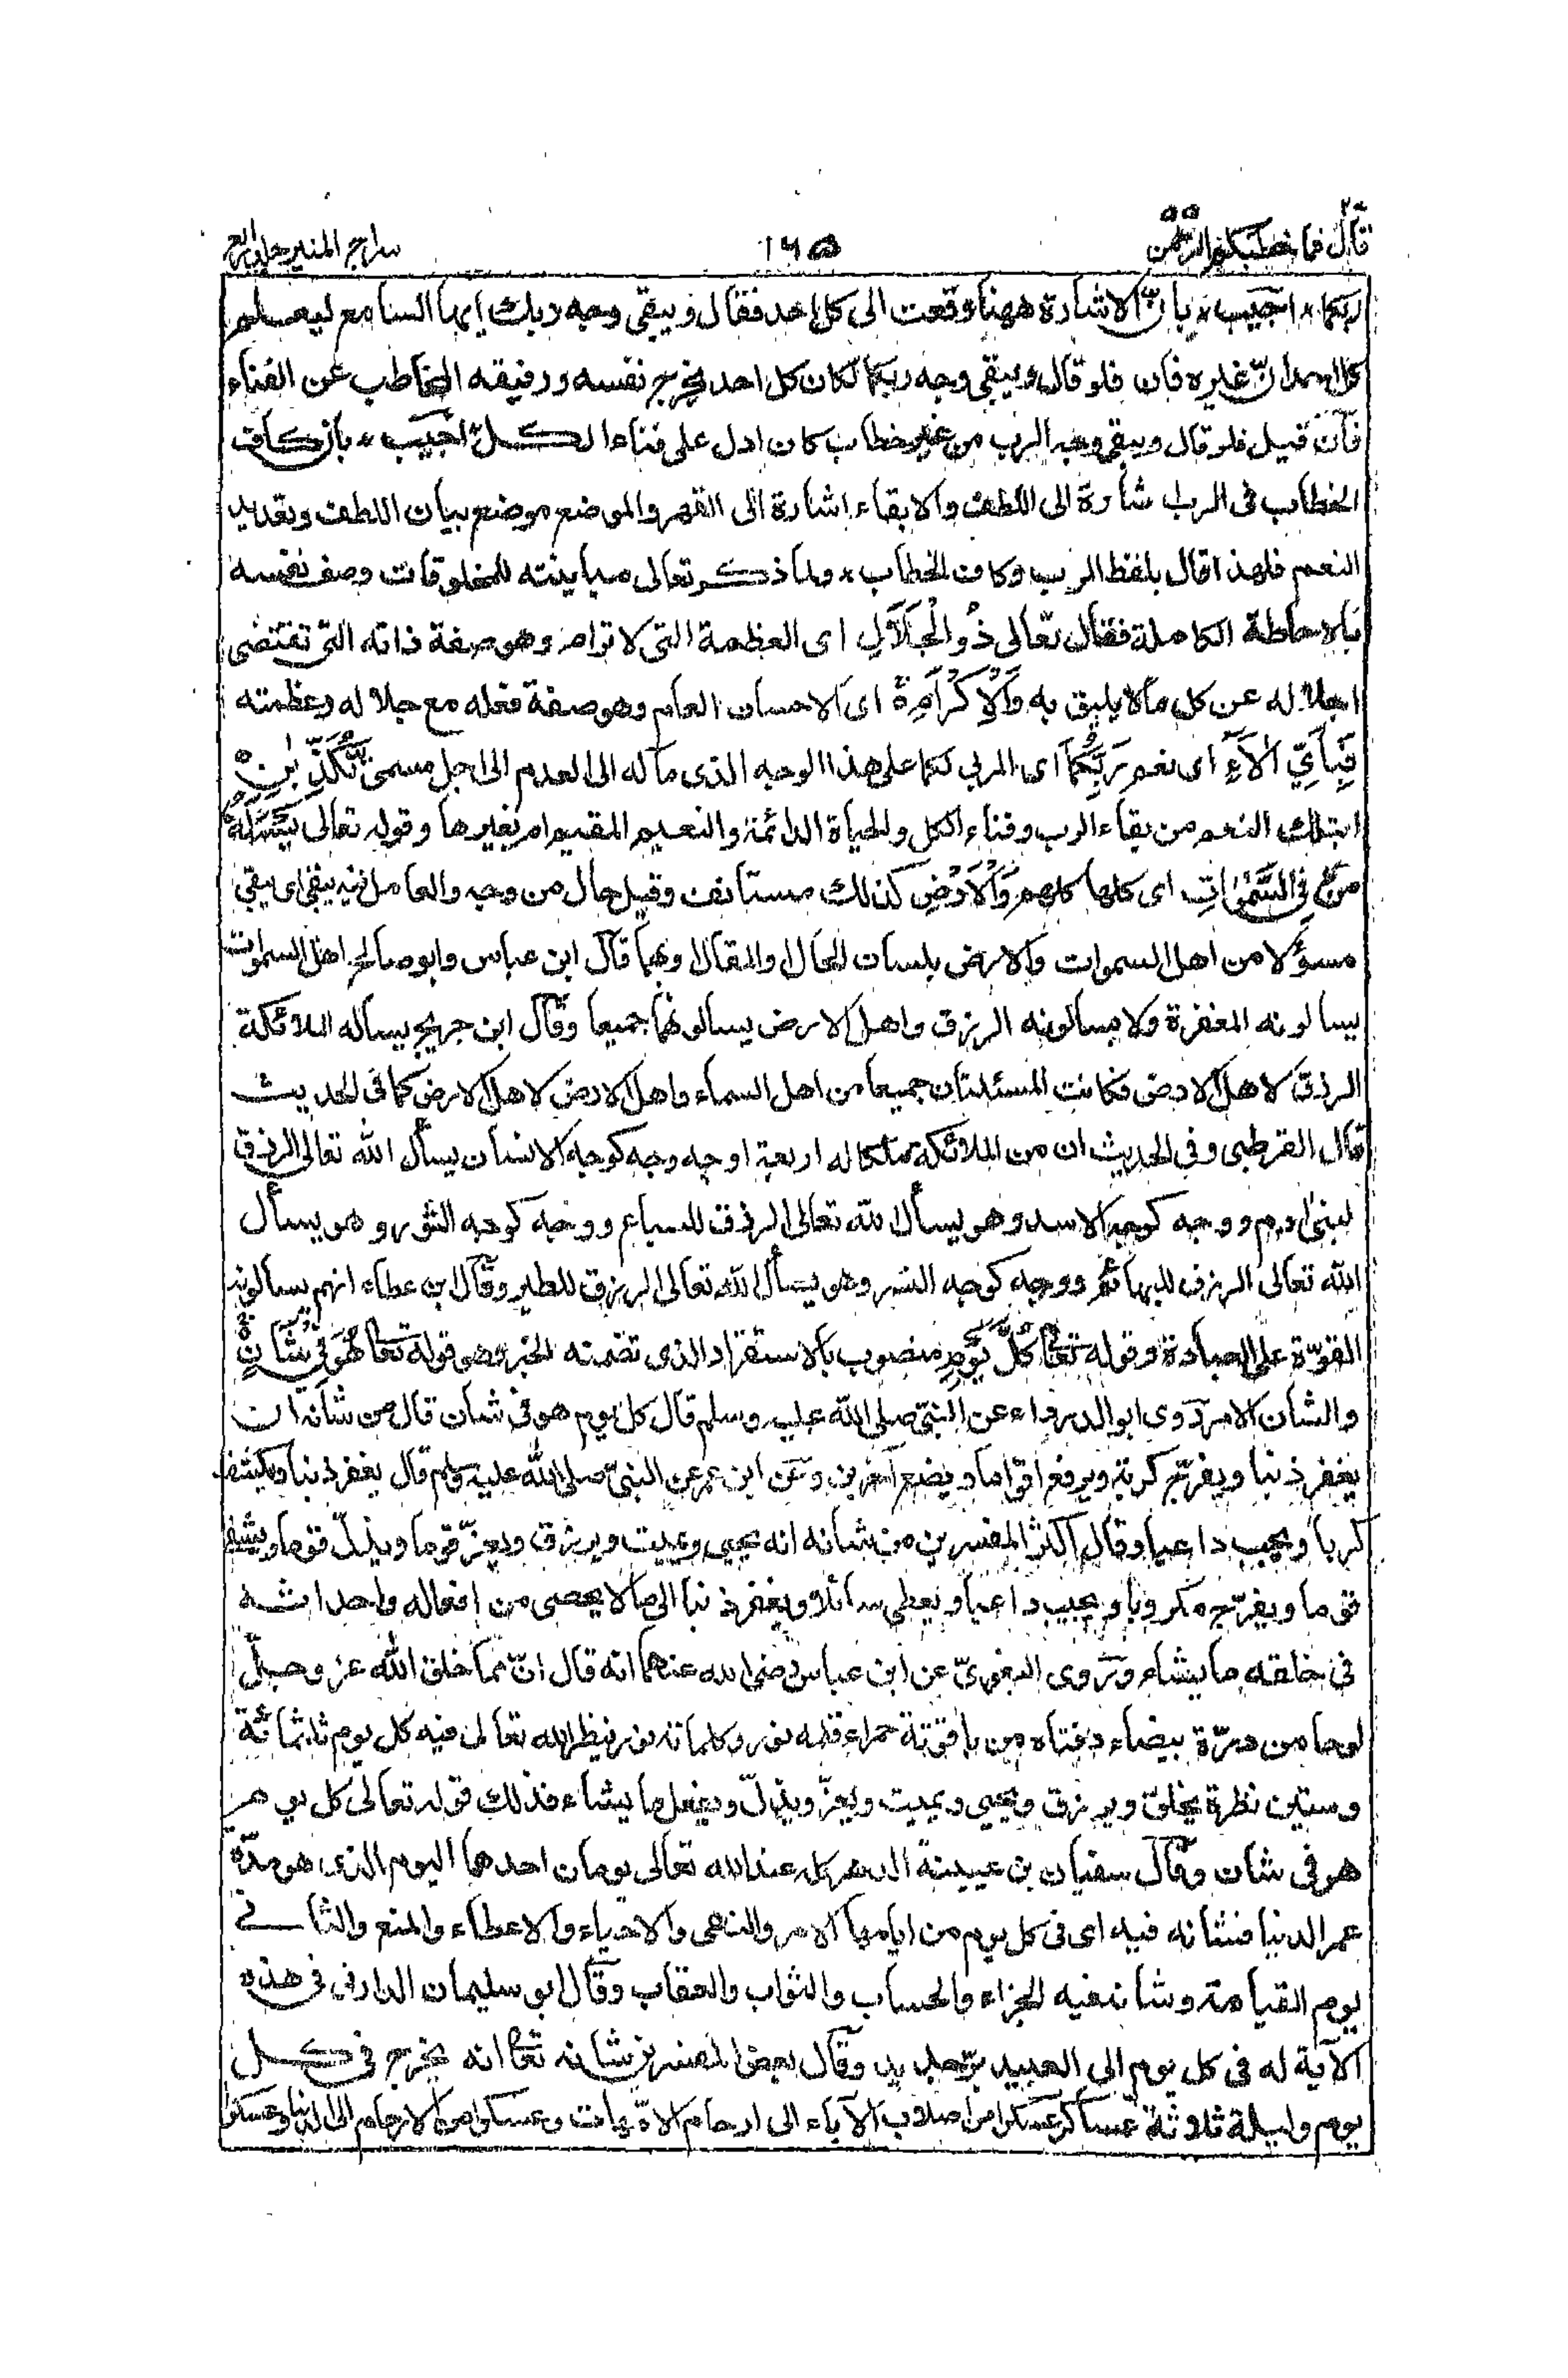 قال فما خطبكم ٢٧ الرحمن ٥٥
١٦٥
سراج المنير جلد رابع
ربكما * اجيب * بانّ الاشارة ههنا وقعت الى كل احد فقال ويبقى وجه ربك ايها السامع ليعلم
كل احد انّ غيره فان فلو قال ويبقى وجه ربكما لكان كل احد يخرج نفسه ورفيقه المخاطب عن الفناء
فان قيل فلو قال ويبقى وجه الرب من غير خطاب كان ادل على فناء الكل اجيب * بان كاف
الخطاب فى الرب اشارة الى اللطف والابقاء اشارة الى القهر والموضع موضع بيان اللطف وتعديد
النعم فلهذا قال بلفظ الرب وكاف الخطاب * ولما ذكر تعالى مباينته للمخلوقات وصف نفسه
بالاحاطة الكاملة فقال تعالى ذُو الْجَلَالِ اى العظمة التى لا ترام وهو صفة ذاته التى تقتضى
اجلاله عن كل ما لا يليق به وَالْاِكْرَامِ اى الاحسان العام وهو صفة فعله مع جلاله وعظمته
فَبِاَيِّ اٰلَآءِ اى نعم رَبِّكُمَا اى المربى لكما على هذا الوجه الذى مآله الى العدم الى اجل مسمى تُكَذِّبٰنِ
ابتلك النعم من بقاء الرب وفناء الكل والحياة الدائمة والنعيم المقيم ام بغيرها وقوله تعالى يَسْئَلُهٗ
مَنْ فِى السَّمٰوٰاتِ اى كلها كلهم وَالْاَرْضِ كذلك مستأنف وقيل حال من وجه والعامل فيه يبقى اى يبقى
مسؤلا من اهل السموات والارض بلسان الحال او المقال او بهما قال ابن عباس وابو صالح اهل السموات
يسالونه المغفرة ولا يسالونه الرزق واهل الارض يسالونهما جميعا وقال ابن جريج يساله الملائكة
الرزق لاهل الارض فكانت المسئلتان جميعا من اهل السماء واهل الارض لاهل الارض كما فى الحديث
قال القرطبى وفى الحديث ان من الملائكة ملكا له اربعة اوجه وجه كوجه الانسان يسأل الله تعالى الرزق
لبنى ادم ووجه كوجه الاسد وهو يسأل الله تعالى الرزق للسباع ووجه كوجه الثور وهو يسأل
الله تعالى الرزق للبهائم ووجه كوجه النسر وهو يسأل الله تعالى الرزق للطير وقال ابن عطاء انهم سالونه
القوّة على العبادة وقوله تعا كُلَّ يَوْمٍ منصوب بالاستقرار الذى تضمنه الخبر وهو قوله تعا هُوَ فِىْ شَاْنٍ
والشان الامر روى ابو الدرداء عن النبىّ صلى الله عليه وسلم قال كل يوم هو فى شان قال من شانه ان
يغفر ذنبا ويفرّج كربة ويرفع اقواما ويضع اخرين وعن ابن عمر عن النبىّ صلى الله عليه وسلم قال يغفر ذنبا ويكشف
كربا ويجيب داعيا وقال اكثر المفسرين من شانه انه يحيى ويميت ويرزق ويعزّ قوما ويذلّ قوما ويشفى
قوما ويفرّج مكروبا ويجيب داعيا ويعطى سائلا ويغفر ذنبا الى ما لا يحصى من افعاله واحداثه
فى خلقه ما يشاء وروى البغوىّ عن ابن عباس رضى الله عنهما انه قال انّ مما خلق الله عز وجلّ
لوحا من درّة بيضاء دفتاه من ياقوتة حمراء قلمه نور وكلماته نور ينظر الله تعالى فيه كل يوم ثلثمائة
وستين نظرة يخلق ويرزق ويحيى ويميت ويعزّ ويذلّ ويفعل ما يشاء فذلك قوله تعالى كل يوم
هو فى شان وقال سفيان بن عيينة الدهر كله عند الله تعالى يومان احدهما اليوم الذى هو مدّة
عمر الدنيا فشانه فيه اى فى كل يوم من ايامها الامر والنهى والاحياء والاعطاء والمنع والثانى
يوم القيامة وشانه فيه الجزاء والحساب والثواب والعقاب وقال ابو سليمان الدارنى فى هذه
الآية له فى كل يوم الى العبيد برّ جديد وقال بعض المفسرين شانه تعا انه يخرج فى كل
يوم وليلة ثلاثة عساكر عسكرا من اصلاب الآباء الى ارحام الامّهات وعسكرا من الارحام الى الدنيا وعسكرا